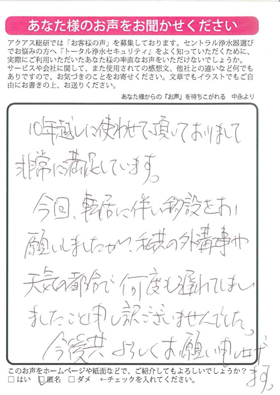 あなた様のお声をお聞かせください
アクアス総研では「お客様の声」を募集しております。セントラル浄水器選び
でお悩みの方へ「トータル浄水セキュリティ」をよく知っていただくために、
実際にご利用いただいたあなた様の率直なお声をいただけないでしょうか。
サービスや会社に関して、また使用されての感想文、他社との違いなど何でも
ありですので、お気づきのことをお寄せください。文章でもイラストでもご自
由にお書きの上、お送りください。
あなた様からの『お声』を待ちこがれる 中永より
10年越しに使わせて頂いておりまして
非常に満足しています。
今回、転居に伴い移設をお
願いしましたが、私共の外構事や
天気の都合で何度も遅れてしまい
ましたこと申し訳ございませんでした。
今後共よろしくお願い申し上げ
ます。
このお声をホームページや紙面などで、ご紹介してもよろしいでしょうか?
□はい □匿名 □ダメ ←チェックを入れてください。